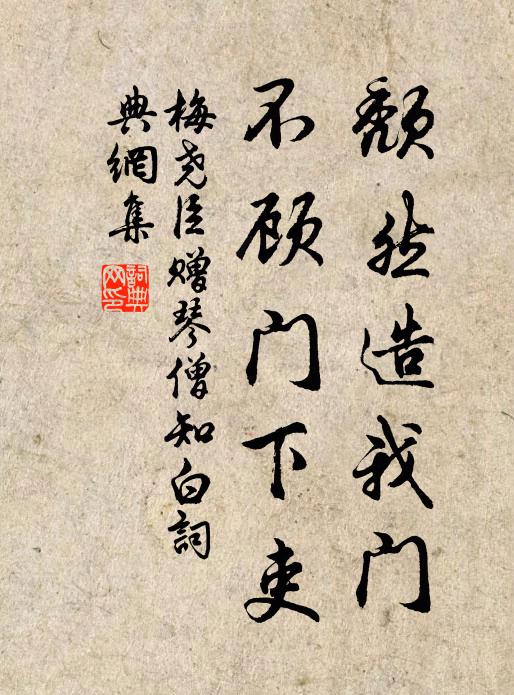 颓然造我门
不顾门下吏
梅尧臣赠琴僧知白詞
典網集
詞典网印